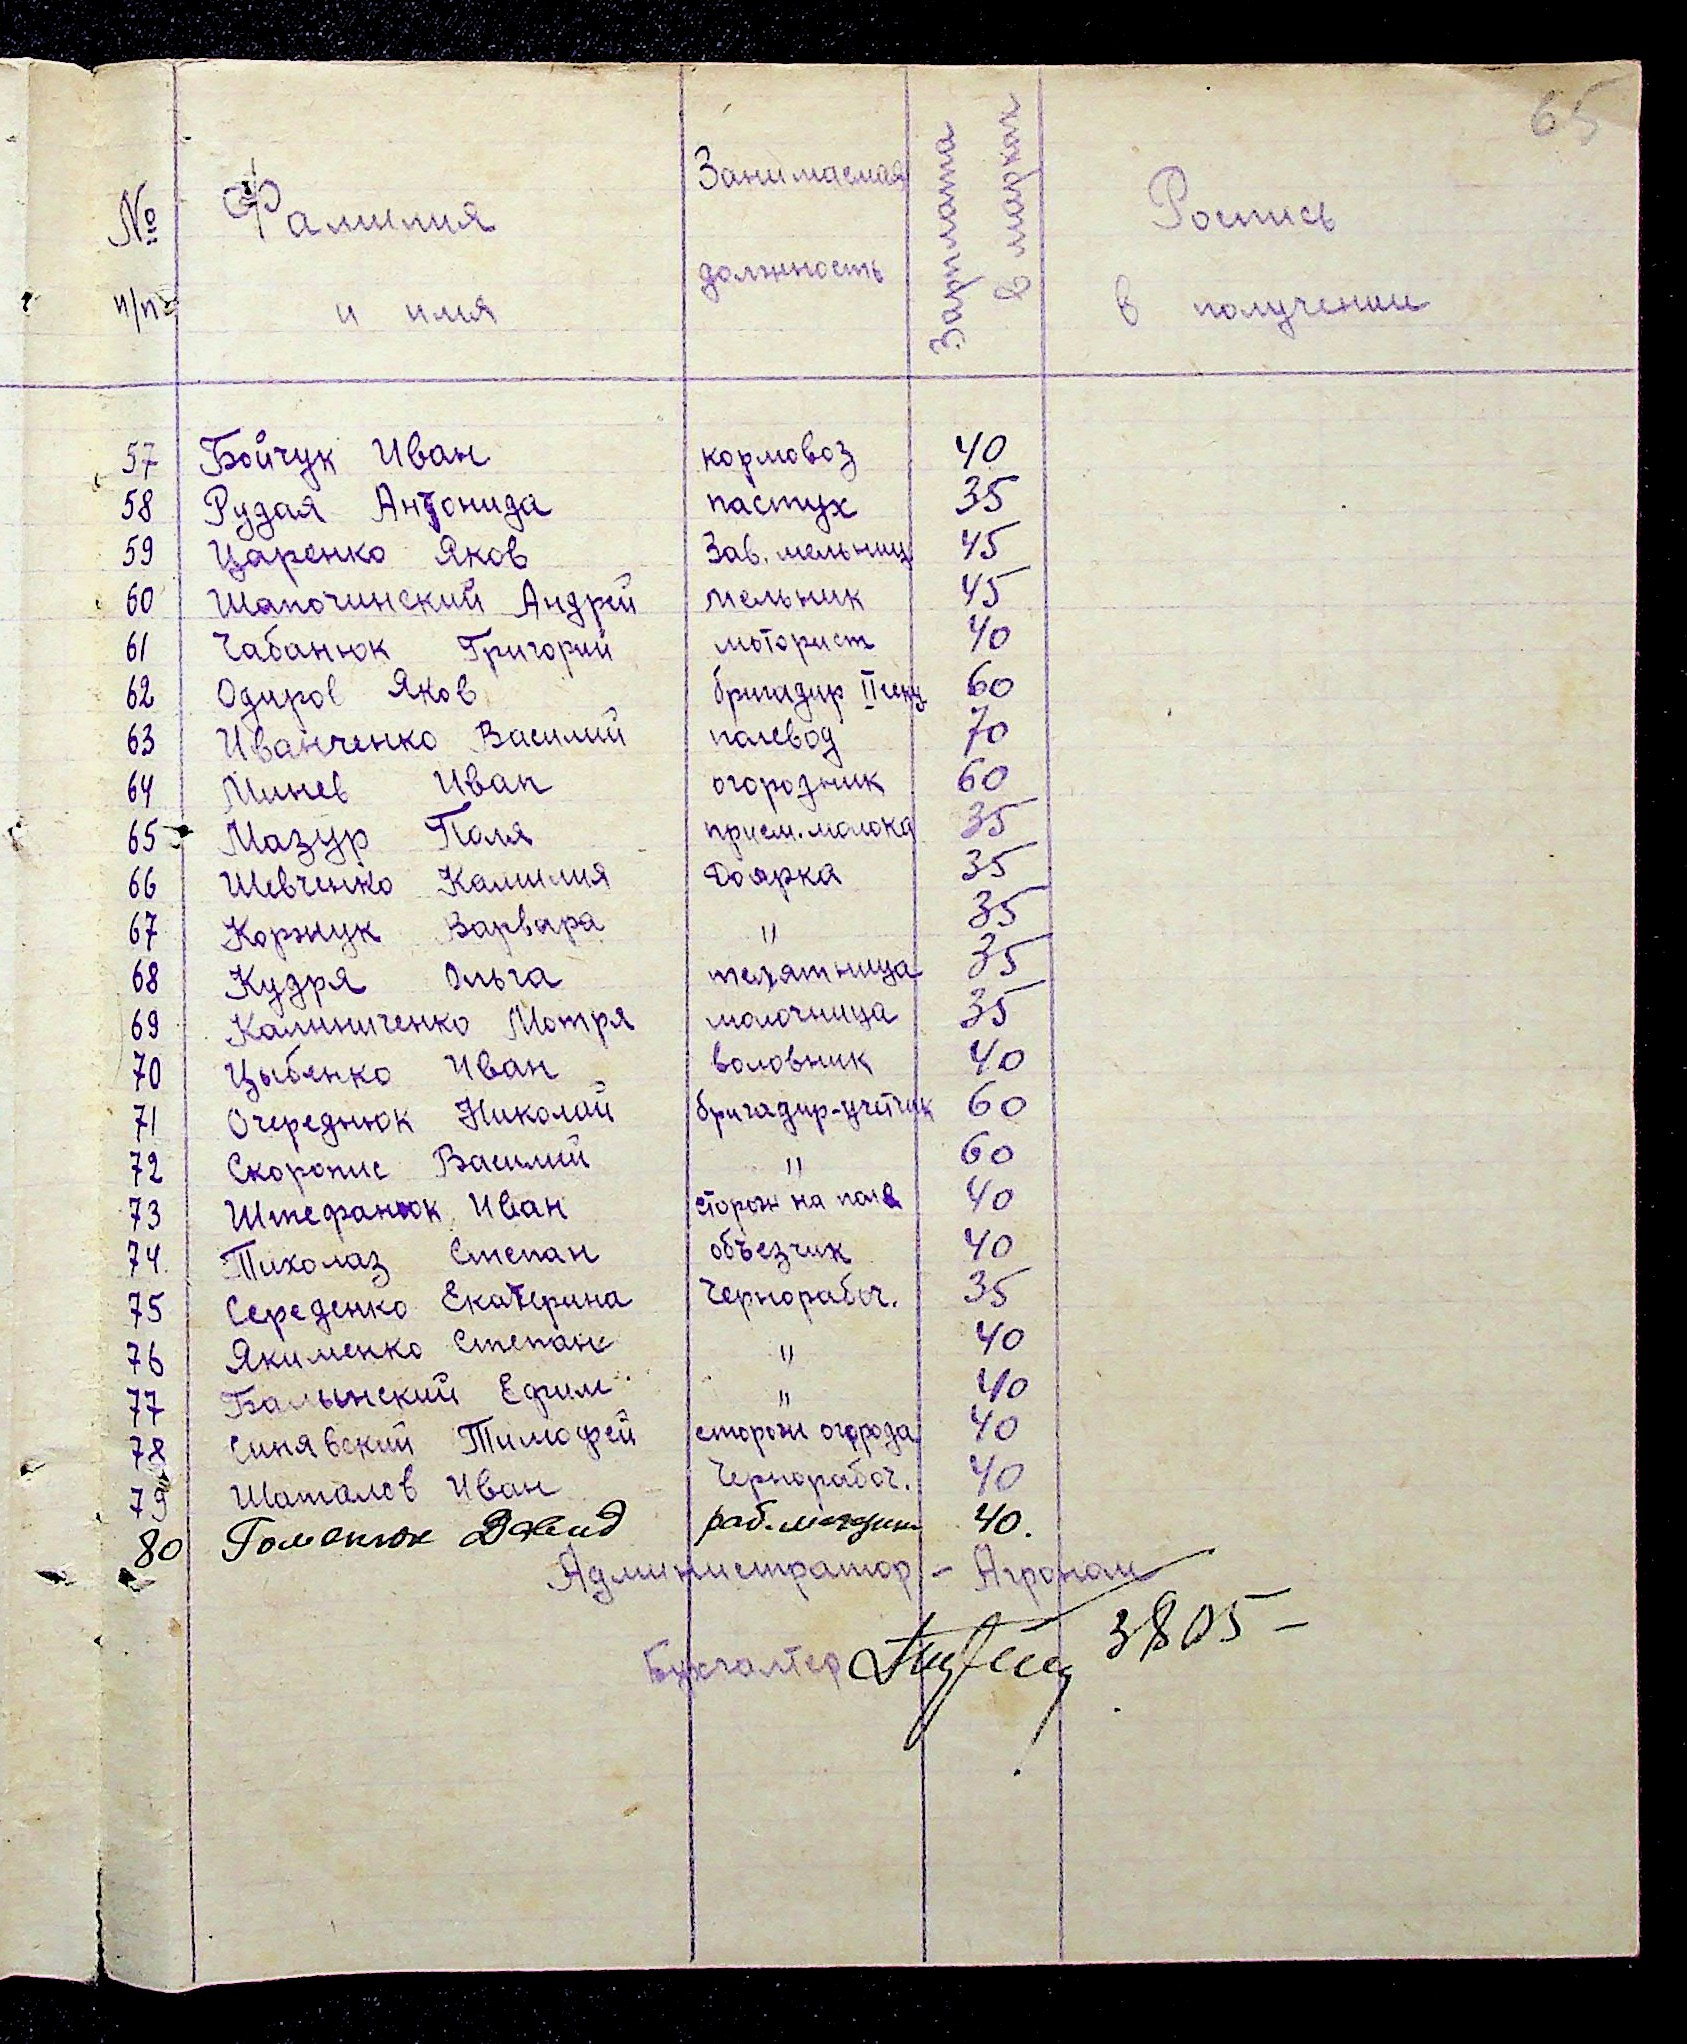 65
№ п/п Фамилия и имя Занимаемая должность Зарплата в марках Роспись в получении
57 Бойчук Иван кормовоз 40
58 Рудая Антонида пастух 35
59 Царенко Яков Зав. мельниц 45
60 Шапочинский Андрей мельник 45
61 Чабанюк Григорий моторист 40
62 Одиров Яков бригадир II 60
63 Иванченко Василий полевод 70
64 Минев Иван огородник 60
65 Мазур Поля прием. молока 35
66 Шевченко Камилия Доярка 35
67 Коржук Варвара " 35
68 Кудря Ольга телятница 35
69 Калиниченко Мотря молочница 35
70 Цыбенко Иван воловник 40
71 Очереднюк Николай бригадир-учетчик 60
72 Скоропис Василий " 60
73 Штефанюк Иван сторож на поле 40
74 Тихолаз Степан объезчик 40
75 Середенко Екатерина Чернорабоч. 35
76 Якименко Степан " 40
77 Балынский Ефим " 40
78 Синявский Тимофей сторож огорода 40
79 Шаталов Иван Чернорабоч. 40
80 Гоменюк Давид раб. 40.
Администратор - Агроном
Бухгалтер 3805-